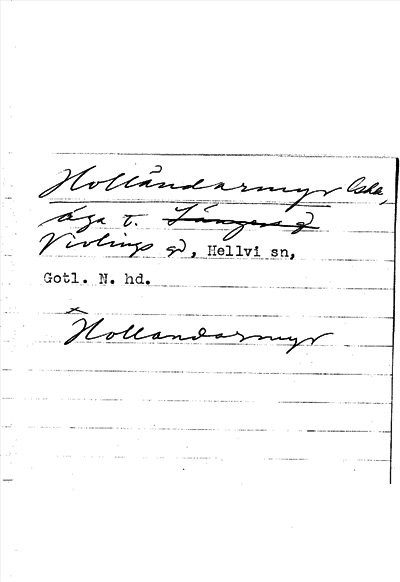 Holländarmyr Oska,
äga t. Långers g
Vivlings gd, Hellvi sn,
Gotl. N. hd.
x
Hollandarmyr